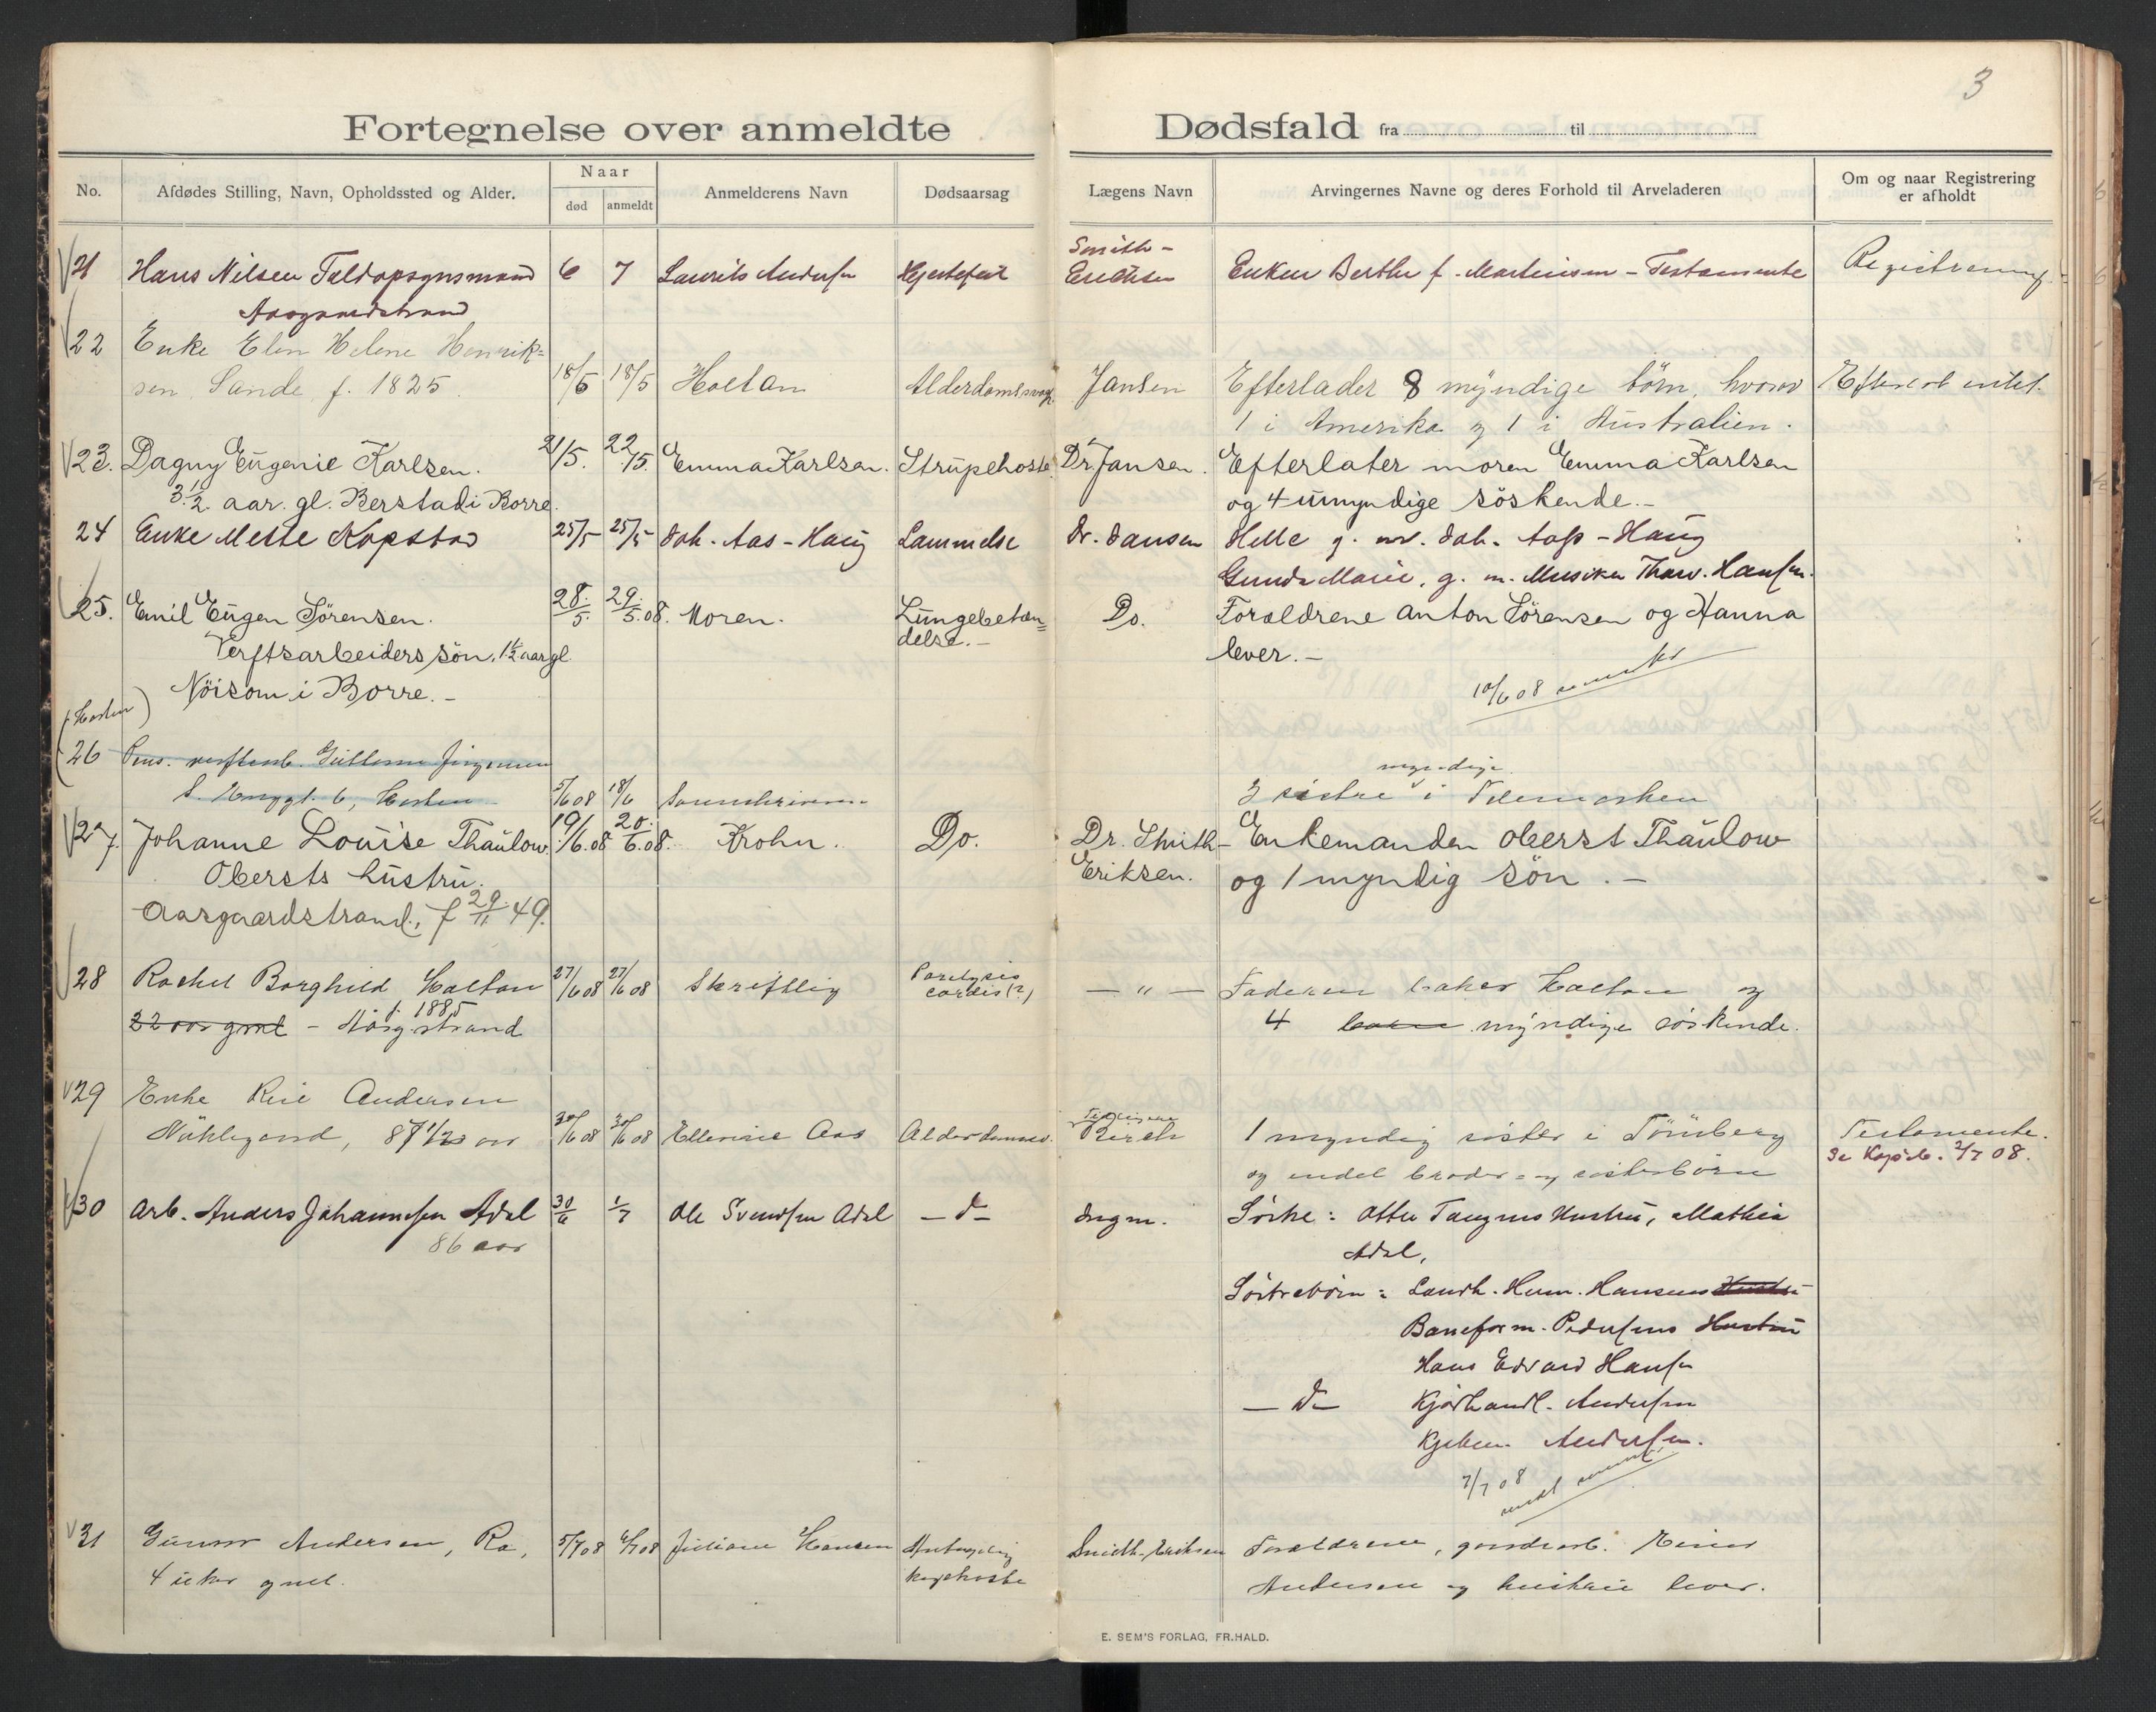 3
Fortegnelse over anmeldte Dødsfald fra til
No. Afdødes Stilling, Navn, Opholdssted og Alder. Naar død anmeldt Anmelderens Navn Dødsaarsag Lægens Navn Arvingernes Navne og deres Forhold til Arveladeren Om og naar Registrering er afholdt
Smith-
21 Hans Nilsen Toldopsynsmand 6 7 Laurits Andersen Hjertefeil Erichsen Enken Berthe f. Martinsen - Testamente Registrering
Aasgaardstrand
22 Enke Elen Helene Henrik=
sen Sande f. 1825. 18/5 18/5 Holtan Alderdomssvag. Jansen Efterlader 8 myndige börn, hvorav Efterlod intet.
1 i Amerika og 1 i Australien.
23. Dagny Eugenie Karlsen. 21/5. 22/5. Emma Karlsen. Strupehoste Dr. Jansen. Efterlater moren Emma Karlsen
3 1/2 aar. gl. Berstad i Borre. og 4 umyndige söskende.-
24 Enke Mette Kopstad 25/5 25/5 Joh. Aas-Haug Lammelse Dr. Jansen Helle g. m. Joh. Aass-Haug
Gunda Marie, g. m. Musiker Thorv. Hansen.
25. Emil Eugen Sørensen. 28./5. 29./5.08. Moren. Lungebetæn= Do. Foræeldrene Anton Sörensen og Hanna
Verftsarbeiders sön, 1 1/2 aar gl delse.- lever.-
Nöisom i Borre.- 10/6 08
(Horten)
26 Pens. verftsarb. Guttorm Jörgensen myndige
6, Horten 5/6 08 18/6 3 søstre i Telemarken
27. Johanne Louise Thaulow. 19/6.08 20./6.08. Krohn. Do. Dr. Smith- Enkemanden Oberst Thaulow
Obersts hustru. Eriksen. og 1 myndig sön.-
Aasgaardstrand, f 29/11 49.
28 Rachel Borghild Holtan 27/6 08 27/6 08 Skriftlig Paralysis cordis(?) — " — Faderen baker Holtan og
22 aar gml f. 1885 - Aasg.strand 4 barn myndige söskende.
29 Enke Andersen
87 1/2 aar 30/6 08 30/6 08 Ellevine Aas Alderdomssv. Birch 1 myndig söster i Tönsberg Testamente.
og endel broder= og sösterbörn Se Kopib. 2/7 08.
30 Arb. Anders Johannesen Adal 30/6 1/7 Ole Svendsen Adal - d - Söstre: Otter Tangens Hustru, Mathea
86 aar Adal,
Söstrebörn: Landh. Hansens Hustru
Baneform. Pedersens Hustru
Hans Edvard Hansen
- d - Andersen
Andersen.
7/7 08
31 Gunvor Andersen, Ra, 5/7 08 6/7 08 Juliane Hansen Antagelig Smith-Eriksen Forældrene, gaardarb. Einar
4 uker gmel. kighoste Andersen og hustru lever.
E. SEM'S FORLAG, FR.HALD.